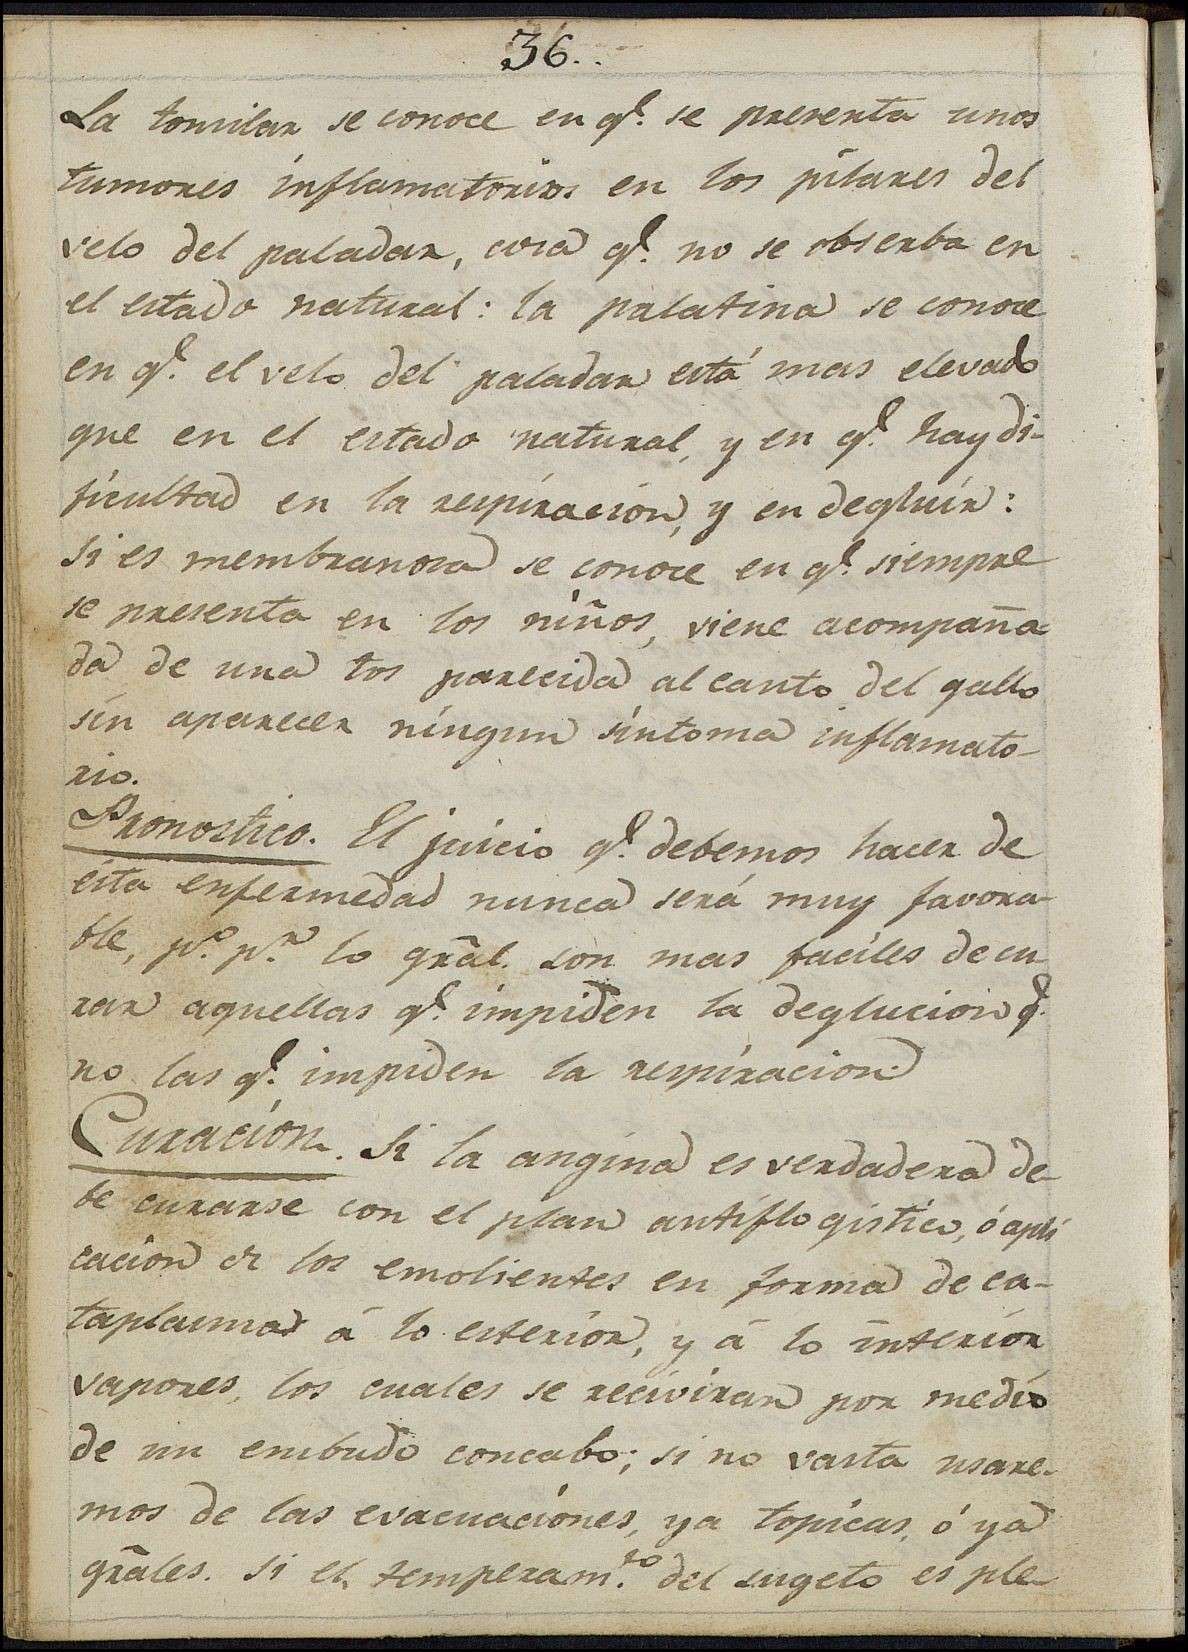 36.
La tomilar se conoce en q.^e se presenta unos
tumores inflamatorios en los pilares del
velo del paladar, cosa q.^e no se obserba en
el estado natural: la palatina se conoce
en q.^e el velo del paladar está mas elevado
que en el estado natural, y en q.^e hay di-
ficultad en la respiracion, y en degluir:
si es membranosa se conoce en q.^e siempre
se presenta en los niños, viene acompaña
da de una tos parecida al canto del gallo
sin aparecer ningun sintoma inflamato-
rio.
Pronostico. El juicio q.^e debemos hacer de
esta enfermedad nunca será muy favora-
ble, p.^o p.^r lo grãl. son mas faciles de cu
rar aquellas q.^e impiden la deglucion q.^e
no las q.^e impiden la respiracion.
Curacion. Si la angina es verdadera de-
be curarse con el plan antiflogistico, ó apli
cacion de los emolientes en forma de ca-
taplasmas á lo esterior, y á lo interior
vapores, los cuales se reciviran por medio
de un embudo concabo; si no vasta usare-
mos de las evacuaciones, ya topicas, ó ya
grãles. si el temperam.^to del sugeto es ple